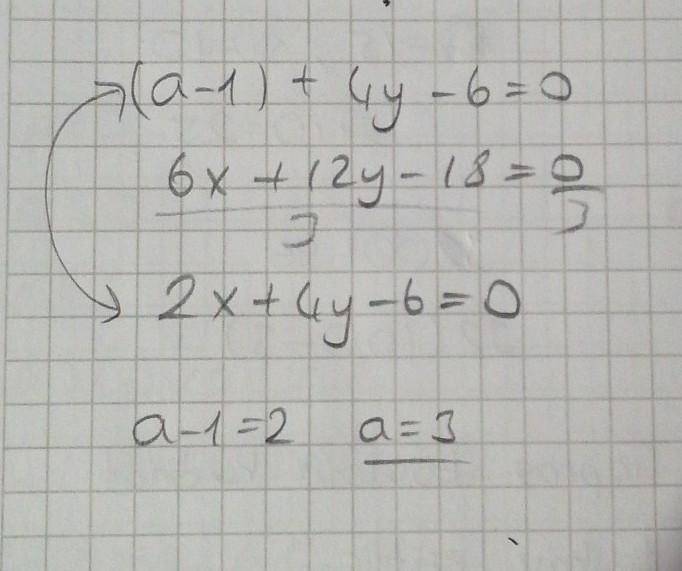 (a-1) + 4y - 6 = 0
6x + 12y - 18 = 0
3 3
2x + 4y - 6 = 0
a - 1 = 2 a = 3